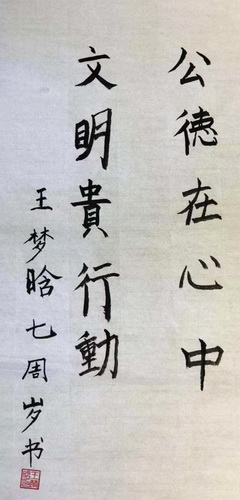 公徳在心中
文明貴行動
王梦晗七周岁书